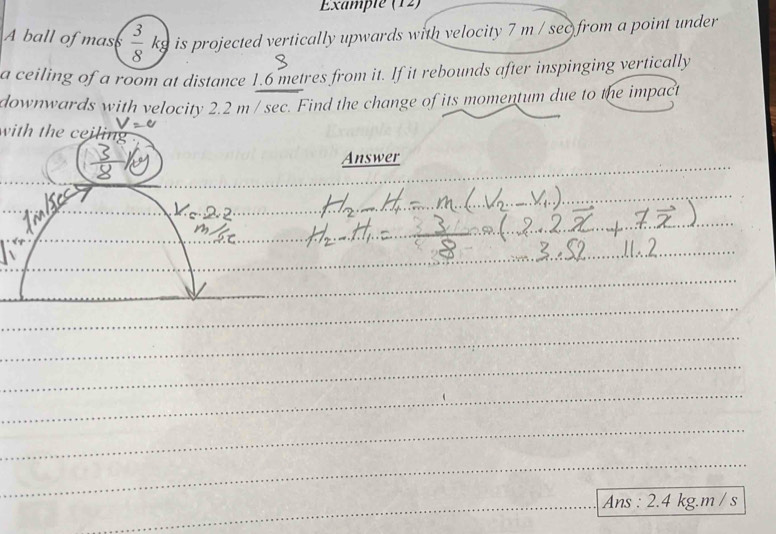 Example (12)
A ball of mass 3/8 kg is projected vertically upwards with velocity 7 m / sec from a point under
a ceiling of a room at distance 1.6 metres from it. If it rebounds after inspinging vertically
downwards with velocity 2.2 m / sec. Find the change of its momentum due to the impact
with the ceiling
V=0
3/8 kg
Answer
7m/sec
V=2.2
m/sec
H₂ - H₁ = m (V₂ - V₁)
H₂ - H₁ = 3/8 (2.2 x⃗ + 7 x⃗)
3.52 11.2
Ans : 2.4 kg.m / s